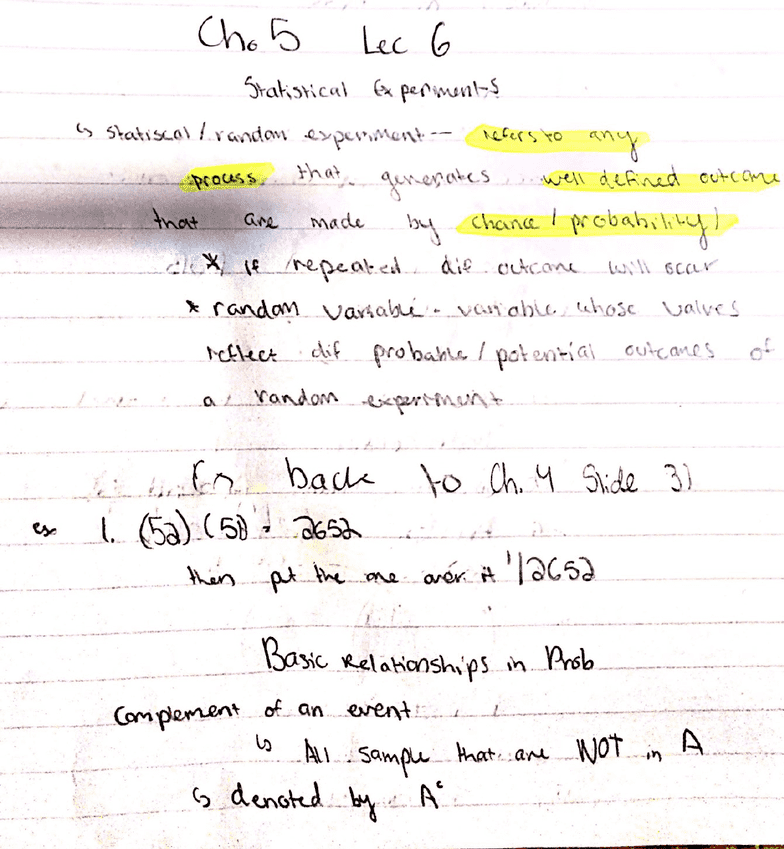 Ch. 5 Lec 6
Statistical Experiments
↳ statiscal / random experiment — refers to any
process that generates well defined outcome
that are made by chance / probability /
* if repeated dif outcome will occar
* random variable - variable whose valves
reflect dif probable / potential outcomes of
a random experiment
back to Ch. 4 Slide 3)
ex 1. (52) (51) = 2652
then put the one over it 1/2652
Basic Relationships in Prob
Complement of an event
↳ All sample that are NOT in A
↳ denoted by Aᶜ